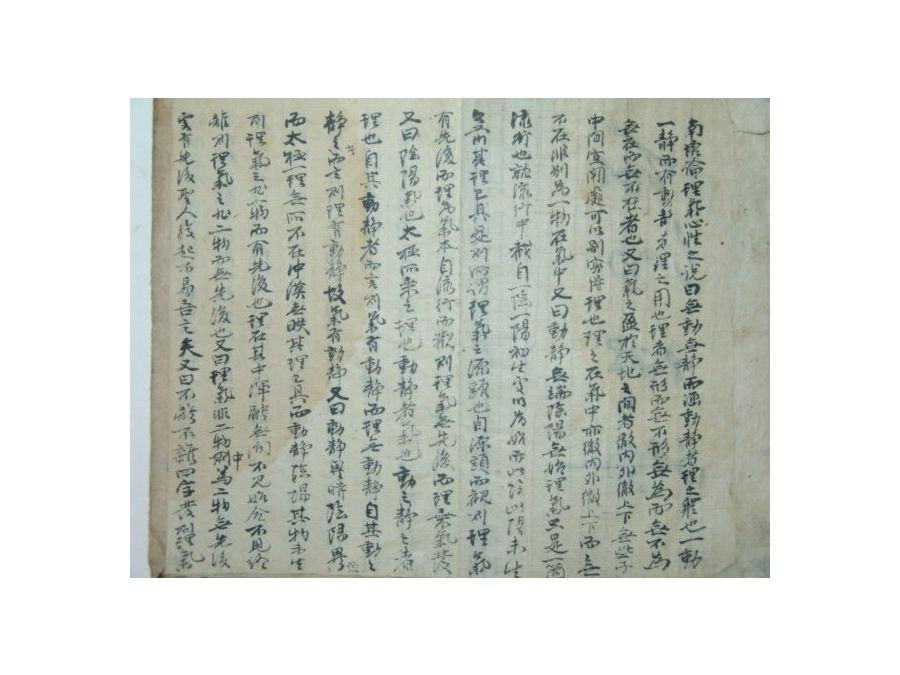 南塘論理氣心性之說曰無動無靜而涵動靜者理之體也一動
一靜而有動者理之用也理者無形而無不形無為而無不為
無在而無不在者也又曰氣之盈於天地之間者徹內外徹上下無些子
中間空闕處可以別窺得理也理之在氣中亦徹內外徹上下而之無
不在非別為一物在氣中又曰動靜無端陰陽無始理氣只是一箇
流行也就流行中截自一陰一陽初生處以為始而此陰此陽未生
之前其理已具是則所謂理氣之源頭也自源頭而觀則理氣
有先後而理為氣本自流行而觀則理氣無先後而理乘氣機
又曰陰陽氣也太極所乘之理也動靜者氣也動之靜之者
理也自其動靜者而言則氣有動靜而理無動靜自其動之
靜之而言則理有動靜故氣有動靜又曰動靜異時陰陽異位
而太極一理無所不在沖漠無眹其理已具而動靜陰陽其物未生
則理氣之如一物而有先後也理在其中渾融無間不見始合不見終
離則理氣之如二物而無先後也又曰理氣非二物中為二物無先後
實有先後聖人復起不易吾言矣又曰不離不雜四字發理氣